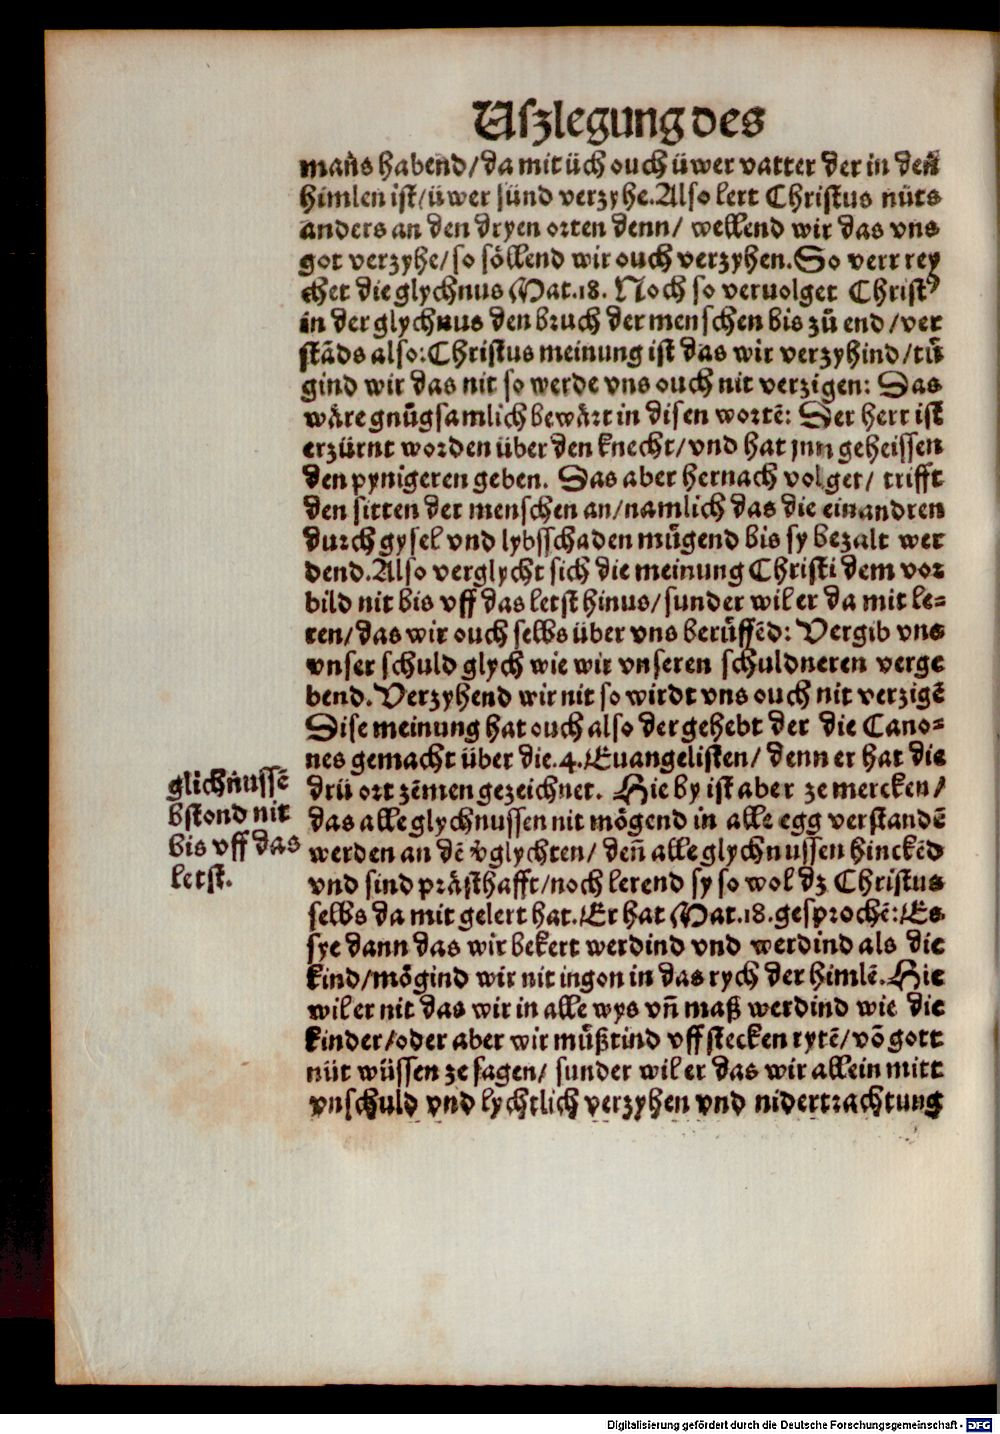 Uszlegung des
mañs habend/da mit üch ouch üwer vatter der in den
himlen ist/üwer sünd verzyhe.Also lert Christus nüts
anders an den dryen orten denn/ wellend wir das vns
got verzyhe/so söllend wir ouch verzyhen.So verr rey
chet die glychnus Mat.18. Noch so veruolget Christꝰ
in der glychnus den bruch der menschen bis zů end/ver
stãds also:Christus meinung ist das wir verzyhind/tů
gind wir das nit so werde vns ouch nit verzigen: Das
wåre gnůgsamlich bewårt in disen wortẽ: Der herr ist
erzürnt worden über den knecht/vnd hat jnn geheissen
den pynigeren geben. Das aber hernach volget/ trifft
den sitten der menschen an/namlich das die einandren
durch gysel vnd lybsschaden mügend bis sy bezalt wer
dend.Also verglycht sich die meinung Christi dem vor
bild nit bis vff das letst hinus/sunder wil er da mit le-
ren/das wir ouch selbs über vns berůffẽd: Vergib vns
vnser schuld glych wie wir vnseren schuldneren verge
bend.Verzyhend wir nit so wirdt vns ouch nit verzigẽ
Dise meinung hat ouch also der gehebt der die Cano-
nes gemacht über die.4.Euangelisten/denn er hat die
drü ort zẽmen gezeichnet. Hie by ist aber ze mercken/
das alle glychnussen nit mögend in alle egg verstandẽ
werden an dẽ v̊glychten/ deñ alle glychnussen hinckẽd
vnd sind pråsthafft/noch lerend sy so wol dz Christus
selbs da mit gelert hat.Er hat Mat.18.gesprochẽ:Es
sye dann das wir bekert werdind vnd werdind als die
kind/mögind wir nit ingon in das rych der himlẽ.Hie
wil er nit das wir in alle wys vñ maß werdind wie die
kinder/oder aber wir můßtind vff stecken rytẽ/võ gott
nüt wüssen ze sagen/ sunder wil er das wir allein mitt
vnschuld vnd lychtlich verzyhen vnd nidertrachtung
glichnussẽ
bstond nit
bis vff das
letst.
Digitalisierung gefördert durch die Deutsche Forschungsgemeinschaft - DFG